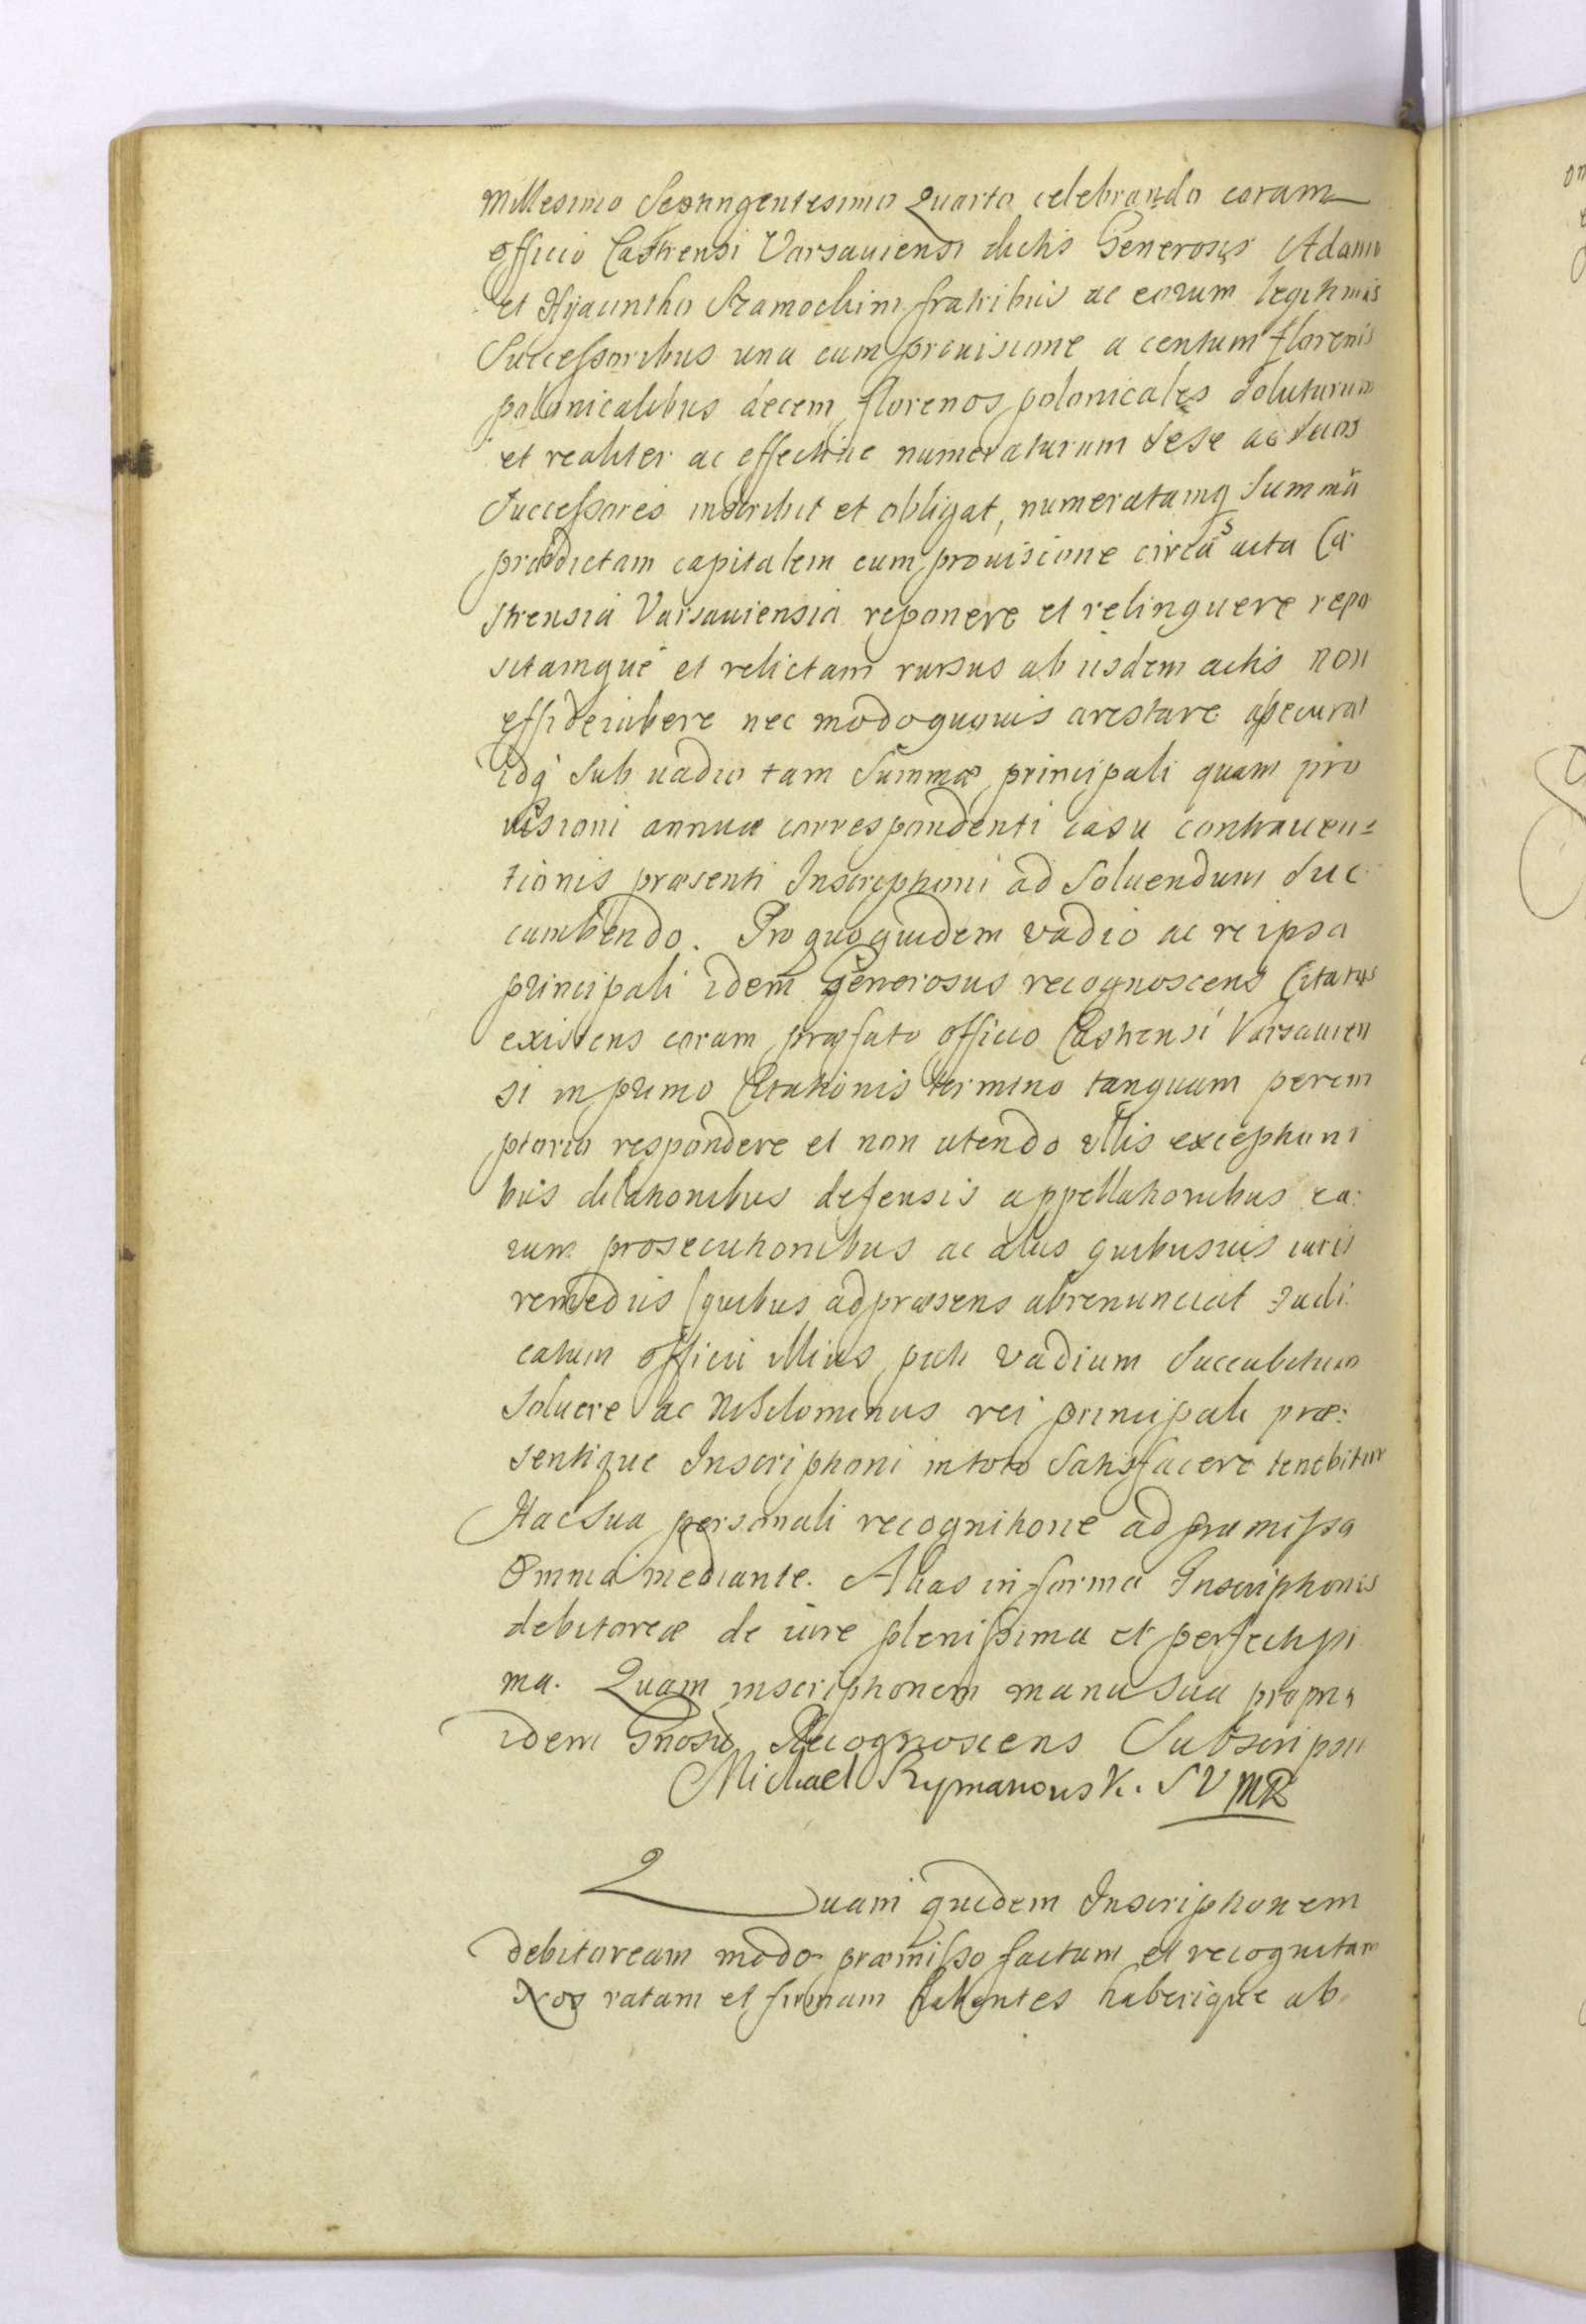 Millesimo Septingentesimo Quarto celebrando coram
officio Castrensi Varsauiensi dictis Generosis Adamo
et Hyacintho Szamockim fratribus ac eorum legitimis
Successoribus una cum prouisione a centum florenis
polonicalibus decem florenos polonicales soluturum
et realiter ac effectiue numeraturum sese ac suos
Successores inscribit et obligat, numeratamq Summã
prædictam capitalem cum prouisione circa acta Ca
strensia Varsauiensia reponere et relinquere repo
sitamque et relictam rursus ab iisdem actis non
effideiubere nec modoquouis arestare assecurat
idq sub uadio tam Summæ principali quam pro
uisioni annuæ correspondenti casu contrauen=
tionis præsenti Inscriptioni ad soluendum suc
cumbendo. Pro quoquidem vadio ac re ipsa
principali idem Generosus recognoscens Citatus
existens coram præfato officio Castrensi Varsauien
si in primo Citationis termino tanquam perem
ptorio respondere et non utendo ullis exceptioni
bus dilationibus defensis appellationibus ea:
rum prosecutionibus ac aliis quibusuis iuris
remediis (quibus ad præsens abrenunciat Iudi
catum officii illius pati vadium succubitum
soluere ac nihilominus rei principali præ:
sentique Inscriptioni in toto satisfacere tenebitur
Hac sua personali recognitione ad præmissa
Omnia mediante. Alias in forma Inscriptionis
debitoreæ de iure plenissima et perfectissi
ma. Quam inscriptionem manu sua propria
idem Gnosus Recognoscens Subscripsit
Michael Rymanowsk. S V MR
Quam quidem Inscriptionem
debitoream modo præmisso factam et recognitam
Nos ratam et firmam habentes haberique ab